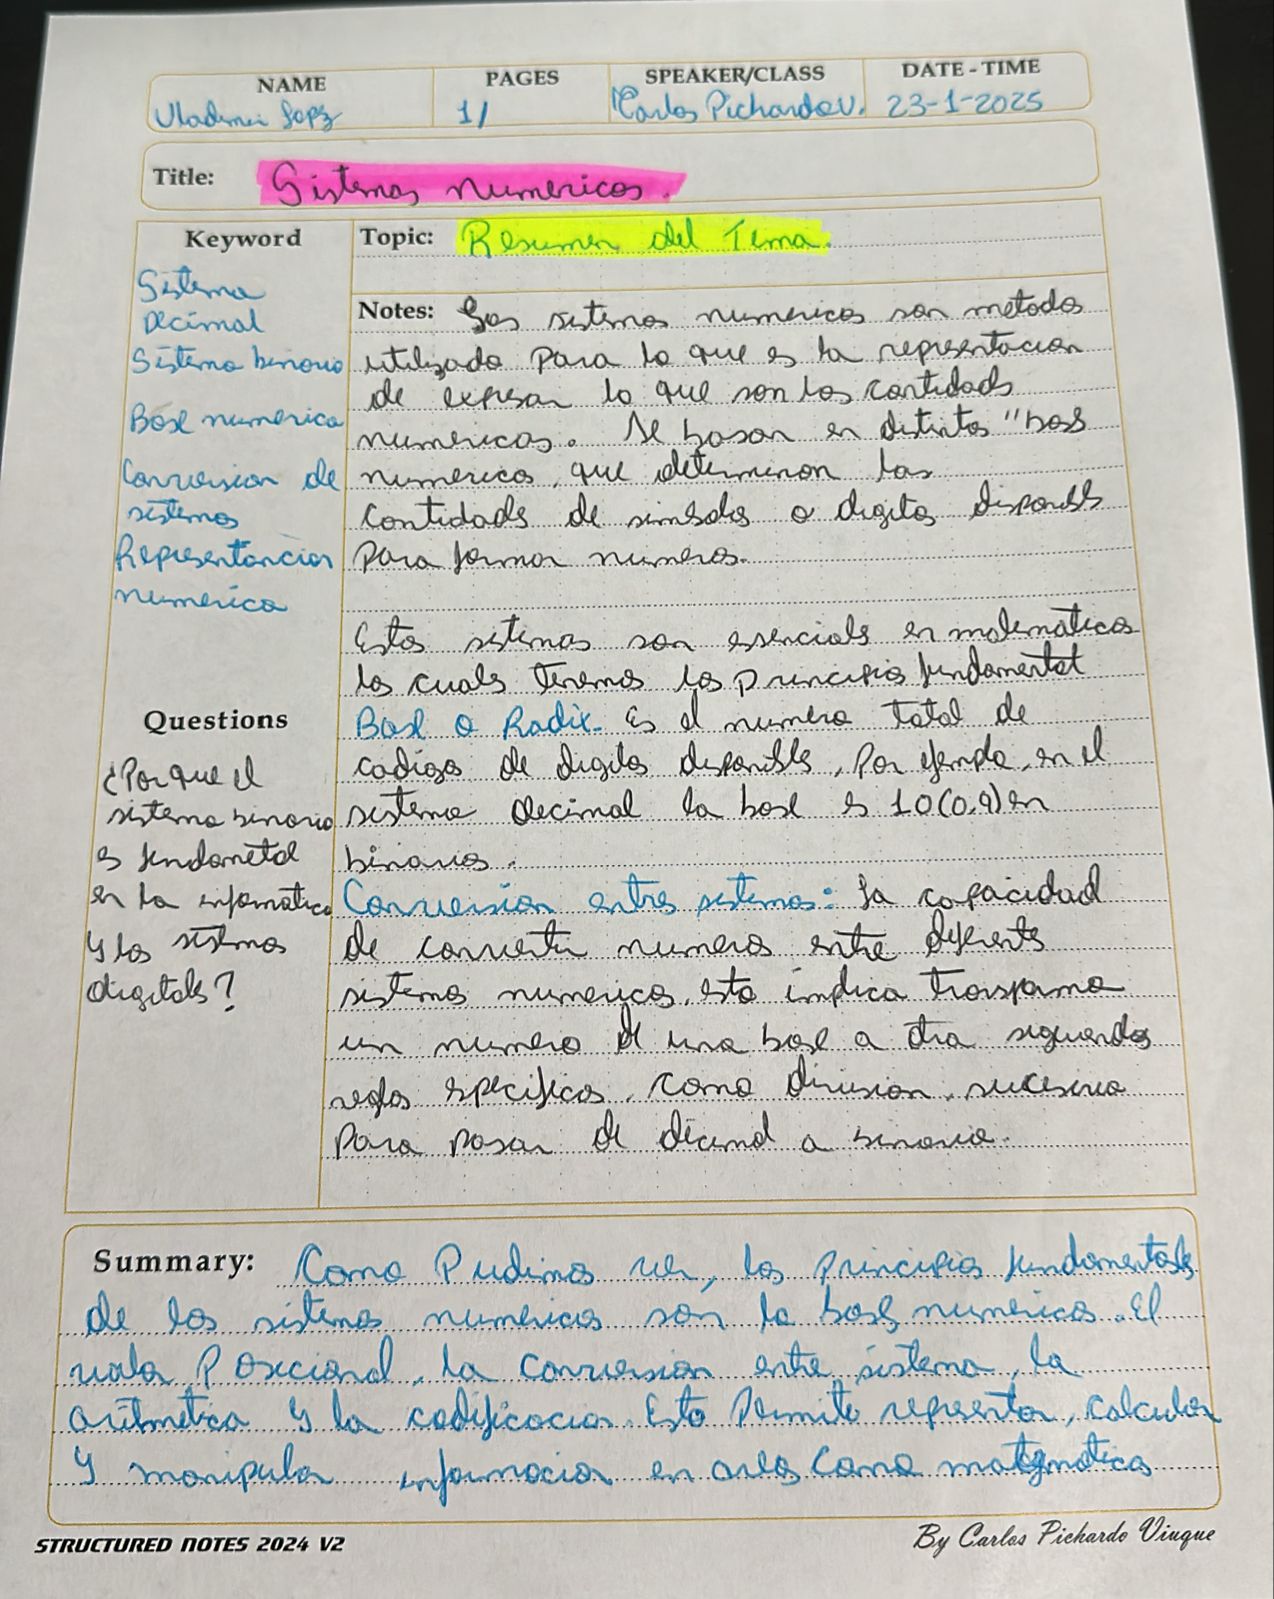 NAME PAGES SPEAKER/CLASS DATE - TIME
Vladimir 1/ Carlos Pichardo V. 23-1-2025
Title: Sistemas numericos.
Keyword
Sistema
Decimal
Sistema binario
Base numerica
Conversion de
sistemas
Representancion
numerica
Questions
¿Por que el
sistema binario
es fundametal
en la infomatica
y los sistemas
digitales?
Topic: Resumen del Tema.
Notes: Los sistemas numericos son metodos
utilizado para lo que es la representacion
de expesar lo que son las cantidades
numericas. Se basan en distintos "bases
numericos, que determinan las
contidades de simbolos o digitos disponibles
para formar numeros.
Estos sistemas son esenciales en matematicas
los cuales tenemos los principios fundamental
Base o Radix. Es el numero total de
codigos de digitos disponibles, Por ejemplo, en el
sistema decimal la base es 10(0,9) en
binarios.
Conversion entre sistemas: la capacidad
de convertir numeros entre diferente
sistemas numericos, esto implica transforma
un numero de una base a otra siguendo
reglas especificas, como division, sucesiva
para pasar de decimal a binario.
Summary: Como Pudimos ver, los principios fundamentales
de los sistemas numericos son la base numericos. El
valor Posicional, la conversion entre sistema, la
aritmetica y la codificacion. Esto Permite representar, calcular
y manipular informacion en areas como matematica
STRUCTURED NOTES 2024 V2
By Carlos Pichardo Viuque